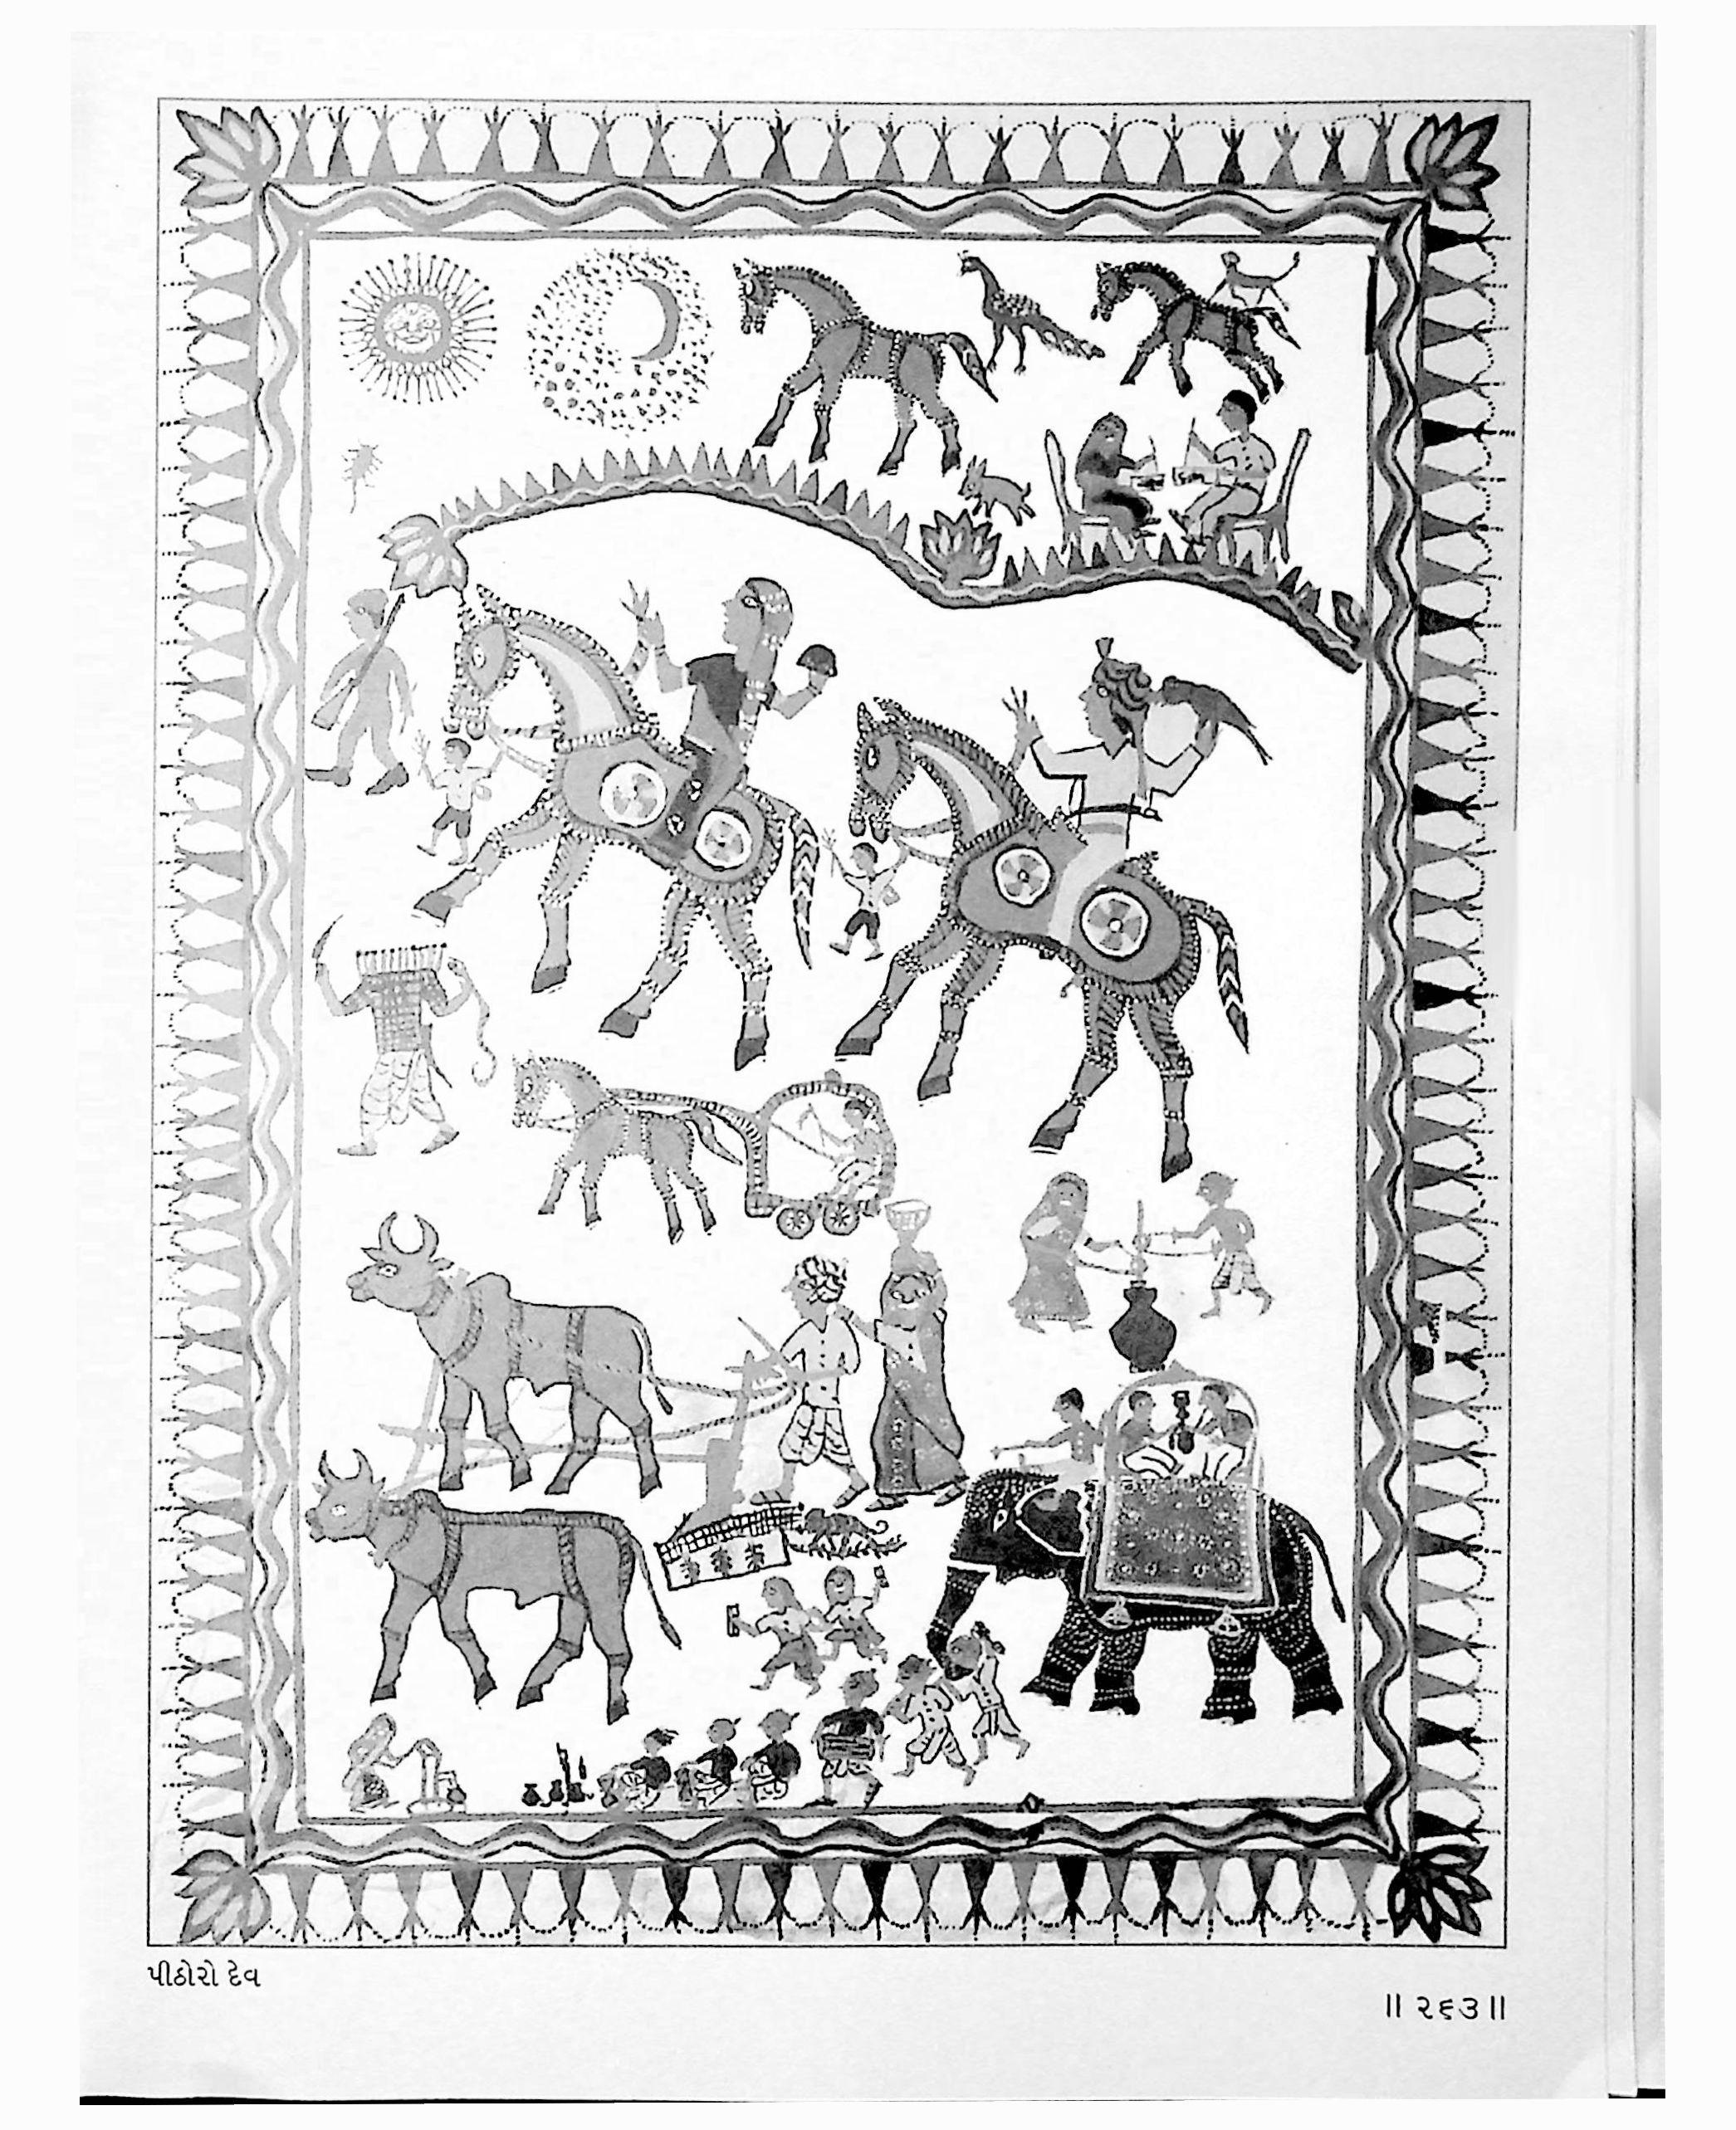 પીઠોરો દેવ
॥ ૨૬૩॥